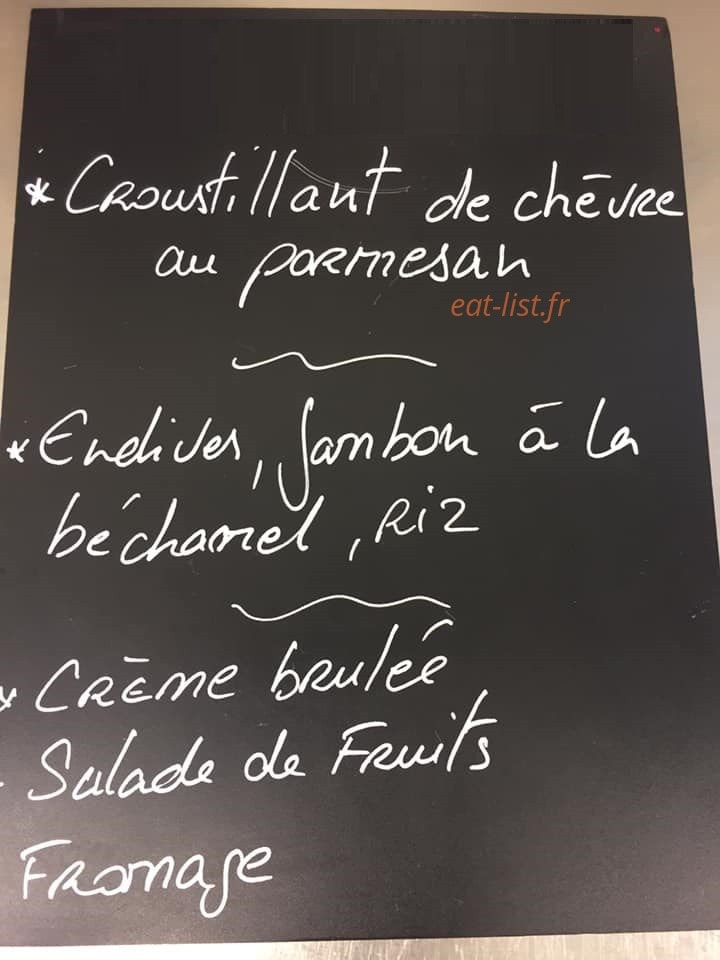 * Croustillant de chèvre
au parmesan
eat-list.fr
* Endives, Jambon à la
béchamel, Riz
* Crème brulée
- Salade de Fruits
Fromage